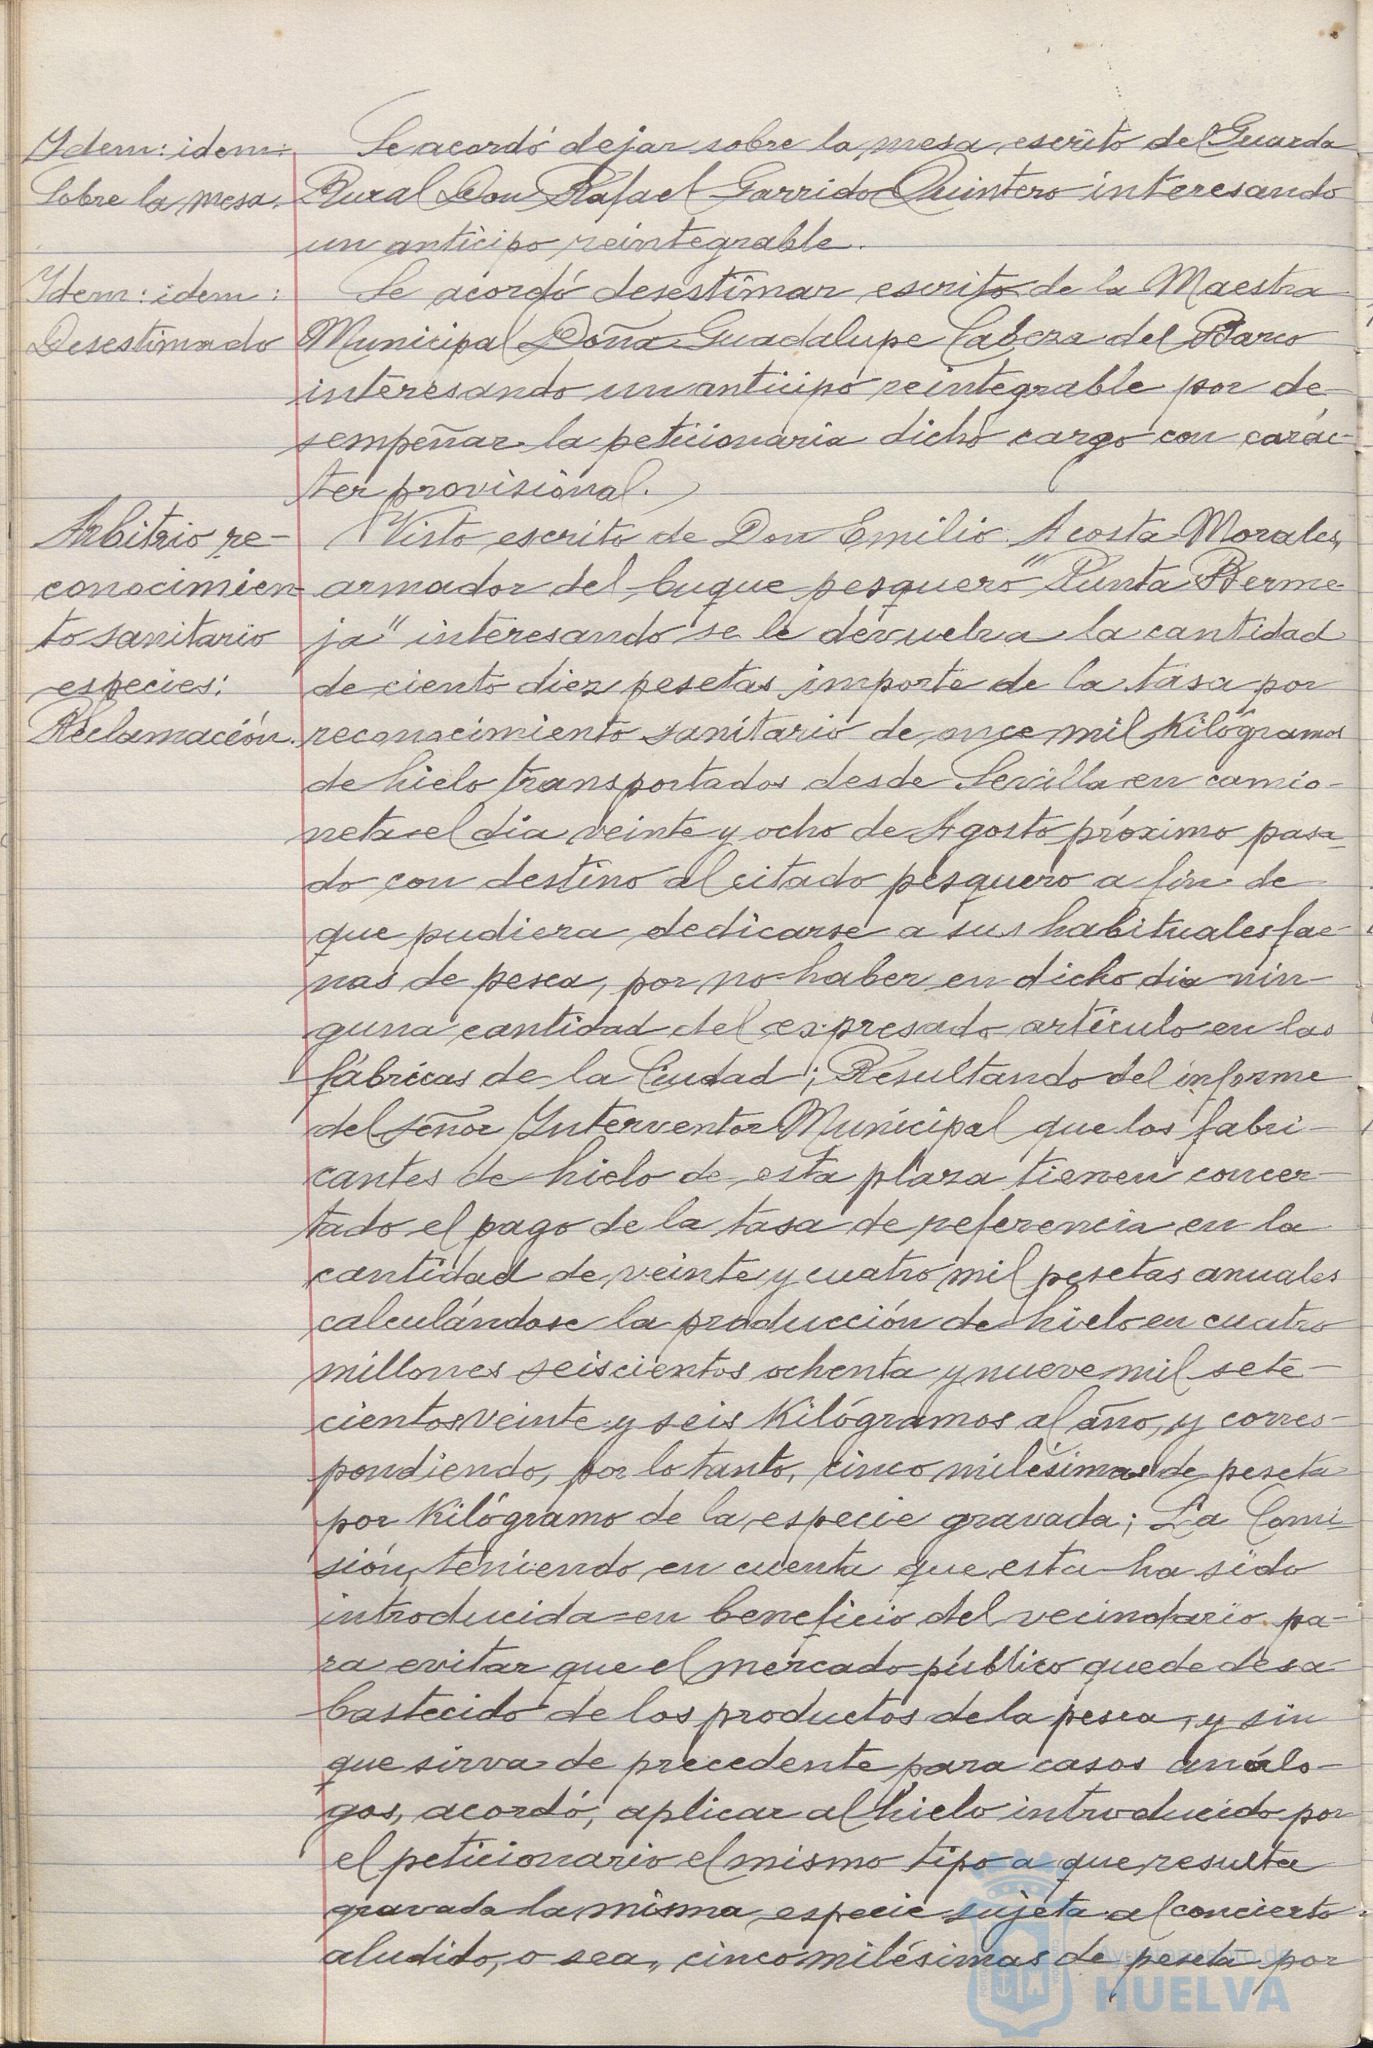 Idem: idem:
Sobre la mesa.
Se acordó dejar sobre la mesa escrito del Guarda
Rural Don Rafael Garrido Quintero interesando
un anticipo reintegrable.
Idem: idem:
Desestimado
Se acordó desestimar escrito de la Maestra
Municipal Doña Guadalupe Cabeza del Barco
interesando un anticipo reintegrable por de-
sempeñar la peticionaria dicho cargo con carác-
ter provisional.
Arbitrio re-
conocimien-
to sanitario
especies:
Reclamación.
Visto escrito de Don Emilio Acosta Morales,
armador del buque pesquero "Punta Berme-
ja" interesando se le devuelva la cantidad
de ciento diez pesetas importe de la tasa por
reconocimiento sanitario de once mil Kilógramos
de hielo transportados desde Sevilla en camio-
neta el dia veinte y ocho de Agosto próximo pasa-
do con destino al citado pesquero a fin de
que pudiera dedicarse a sus habituales fae-
nas de pesca, por no haber en dicho dia nin-
guna cantidad del expresado artículo en las
fábricas de la Ciudad; Resultando del informe
del Señor Interventor Municipal que los fabri-
cantes de hielo de esta plaza tienen concer-
tado el pago de la tasa de referencia en la
cantidad de veinte y cuatro mil pesetas anuales
calculándose la producción de hielo en cuatro
millones seiscientos ochenta y nueve mil sete-
cientos veinte y seis Kilógramos al año, y corres-
pondiendo, por lo tanto, cinco milésimas de peseta
por Kilógramo de la especie gravada; La Comi-
sión, teniendo en cuenta que esta ha sido
introducida en beneficio del vecindario pa-
ra evitar que el mercado público quede desa-
bastecido de los productos de la pesca, y sin
que sirva de precedente para casos análo-
gos, acordó, aplicar al hielo introducido por
el peticionario el mismo tipo a que resulta
gravada la misma especie sujeta al concierto
aludido, o sea, cinco milésimas de peseta por
Ayuntamiento de
HUELVA